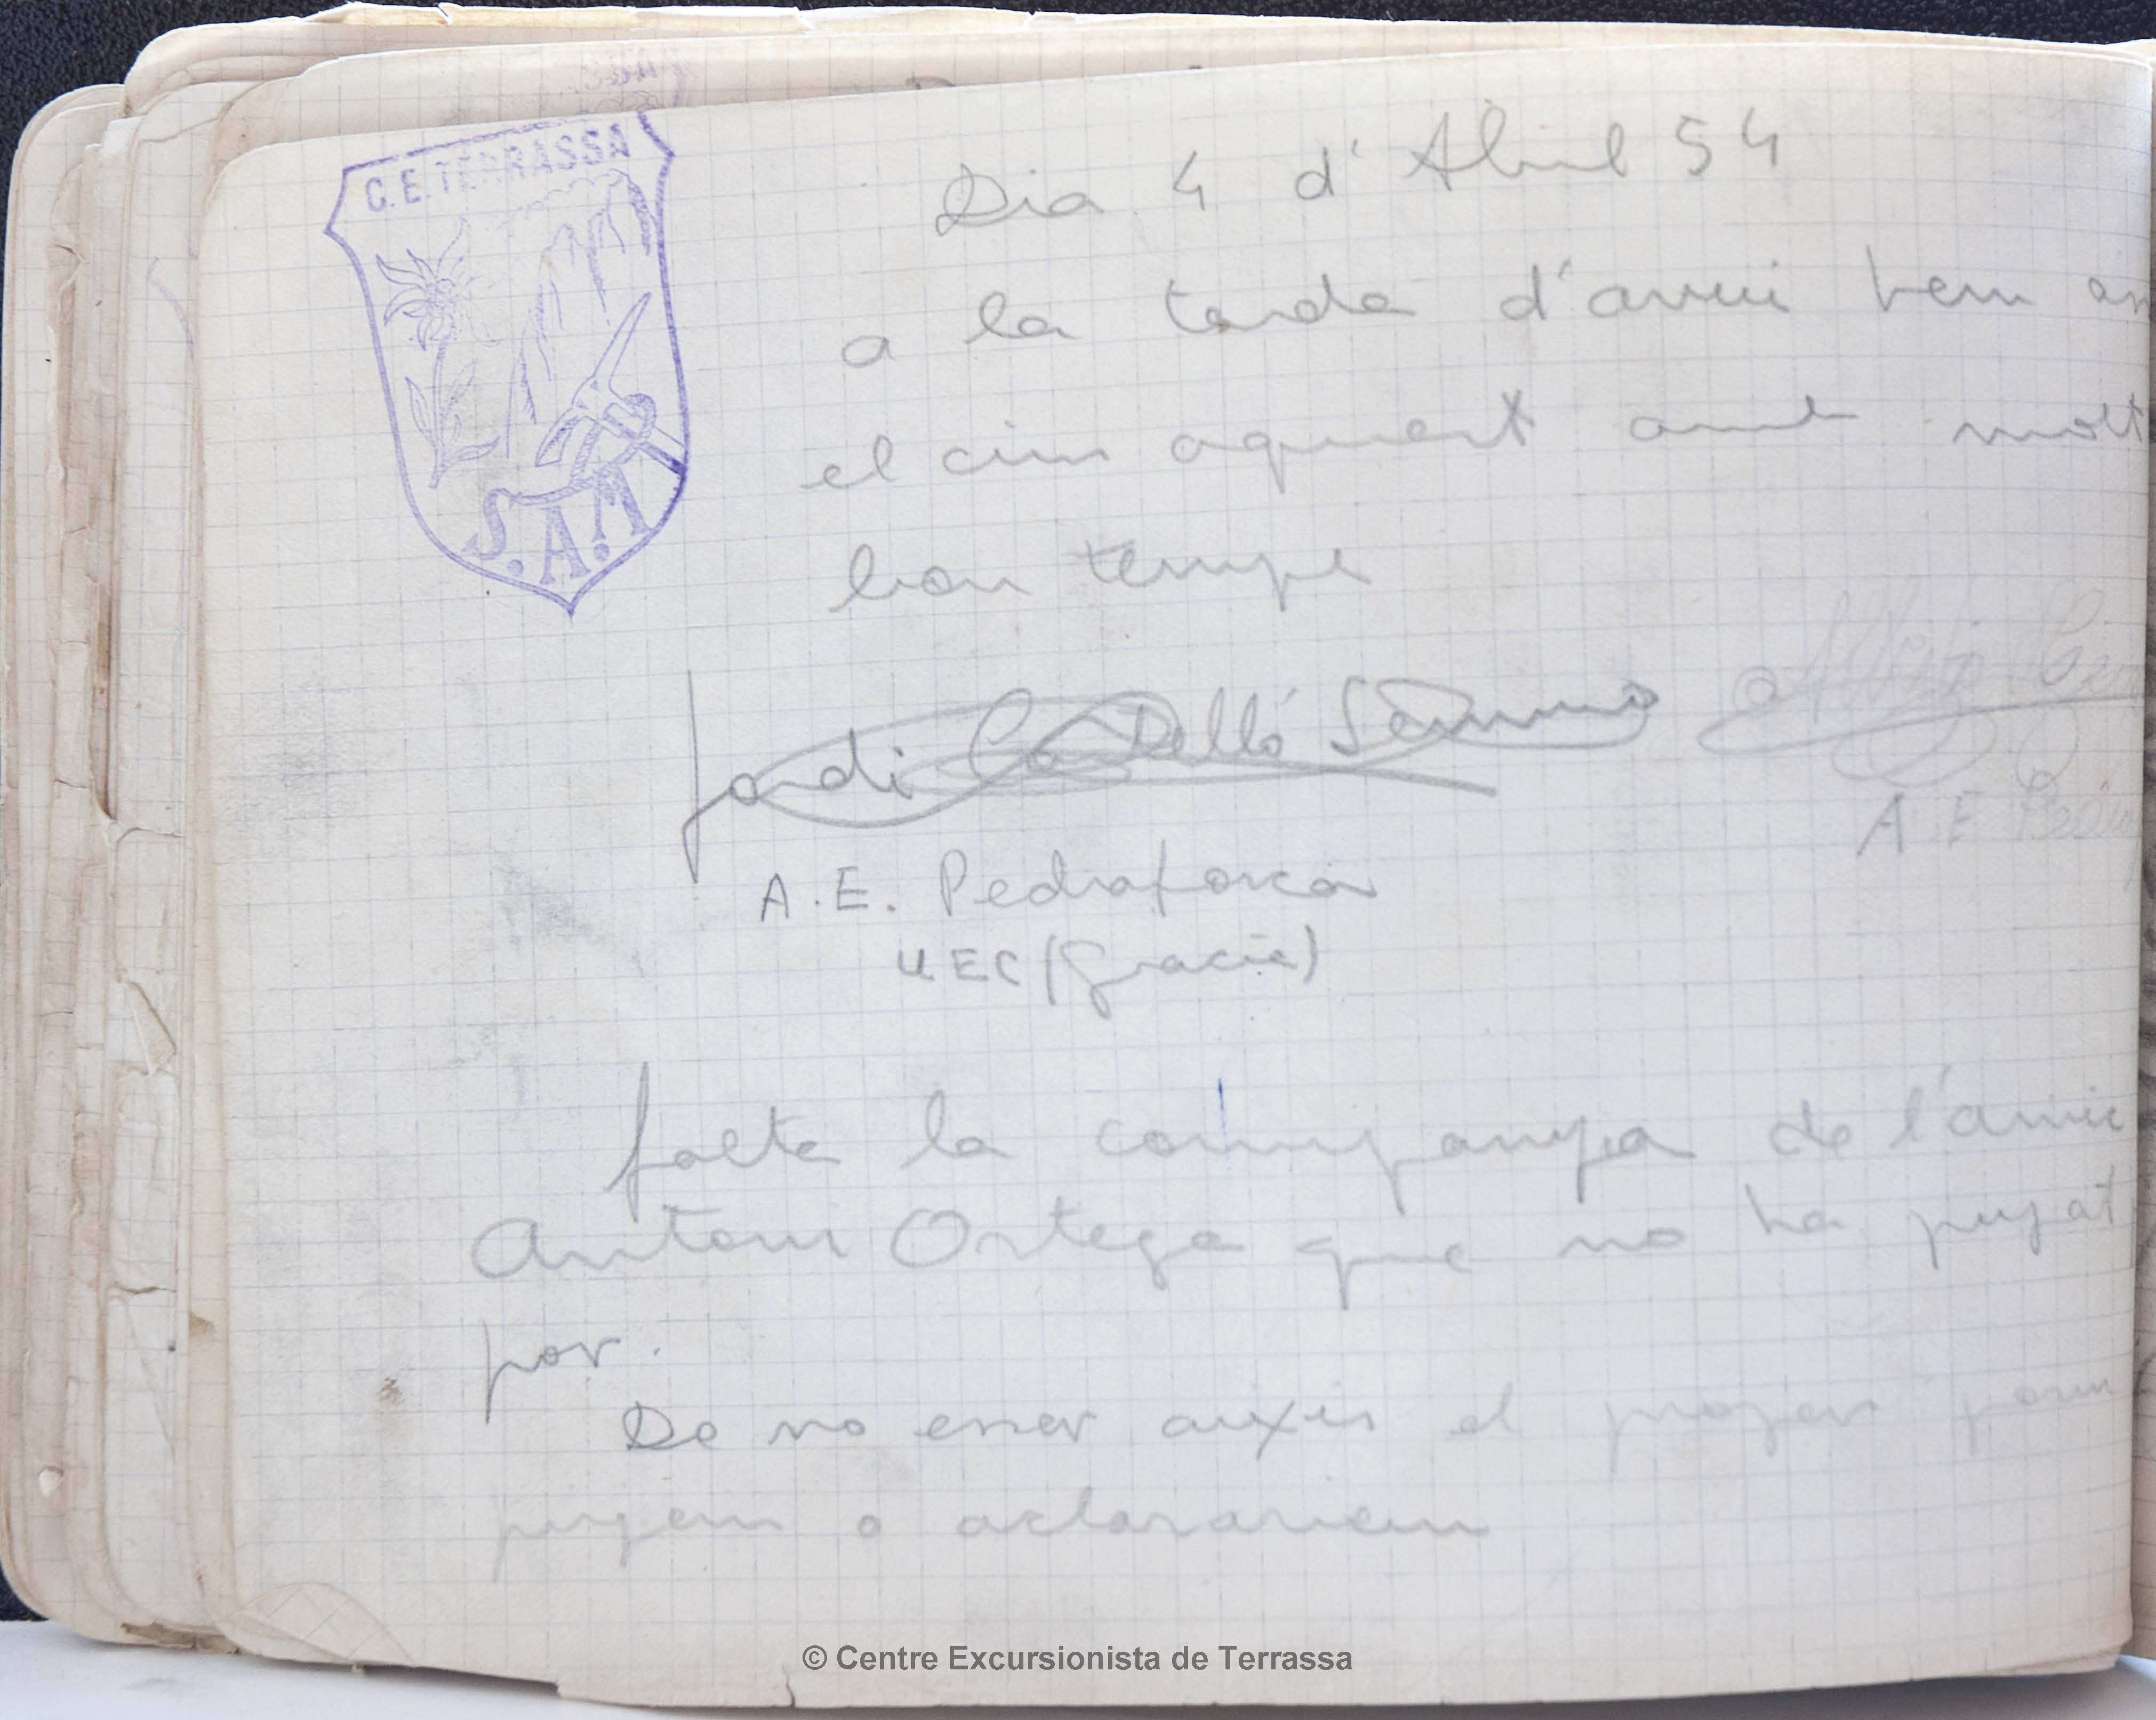 C.E. TERRASSA
S.A.M
Dia 4 d'Abril 54
a la tarda d'avui hem
el cim aquest amb molt
bon temps
Jordi Castelló
A.E. Pedraforca
UEC (Gracia)
A E
falta la companyia de l'amic
Antoni Ortega que no ha pujat
por.
De no esser aixis el
pugem o aclarariem
© Centre Excursionista de Terrassa